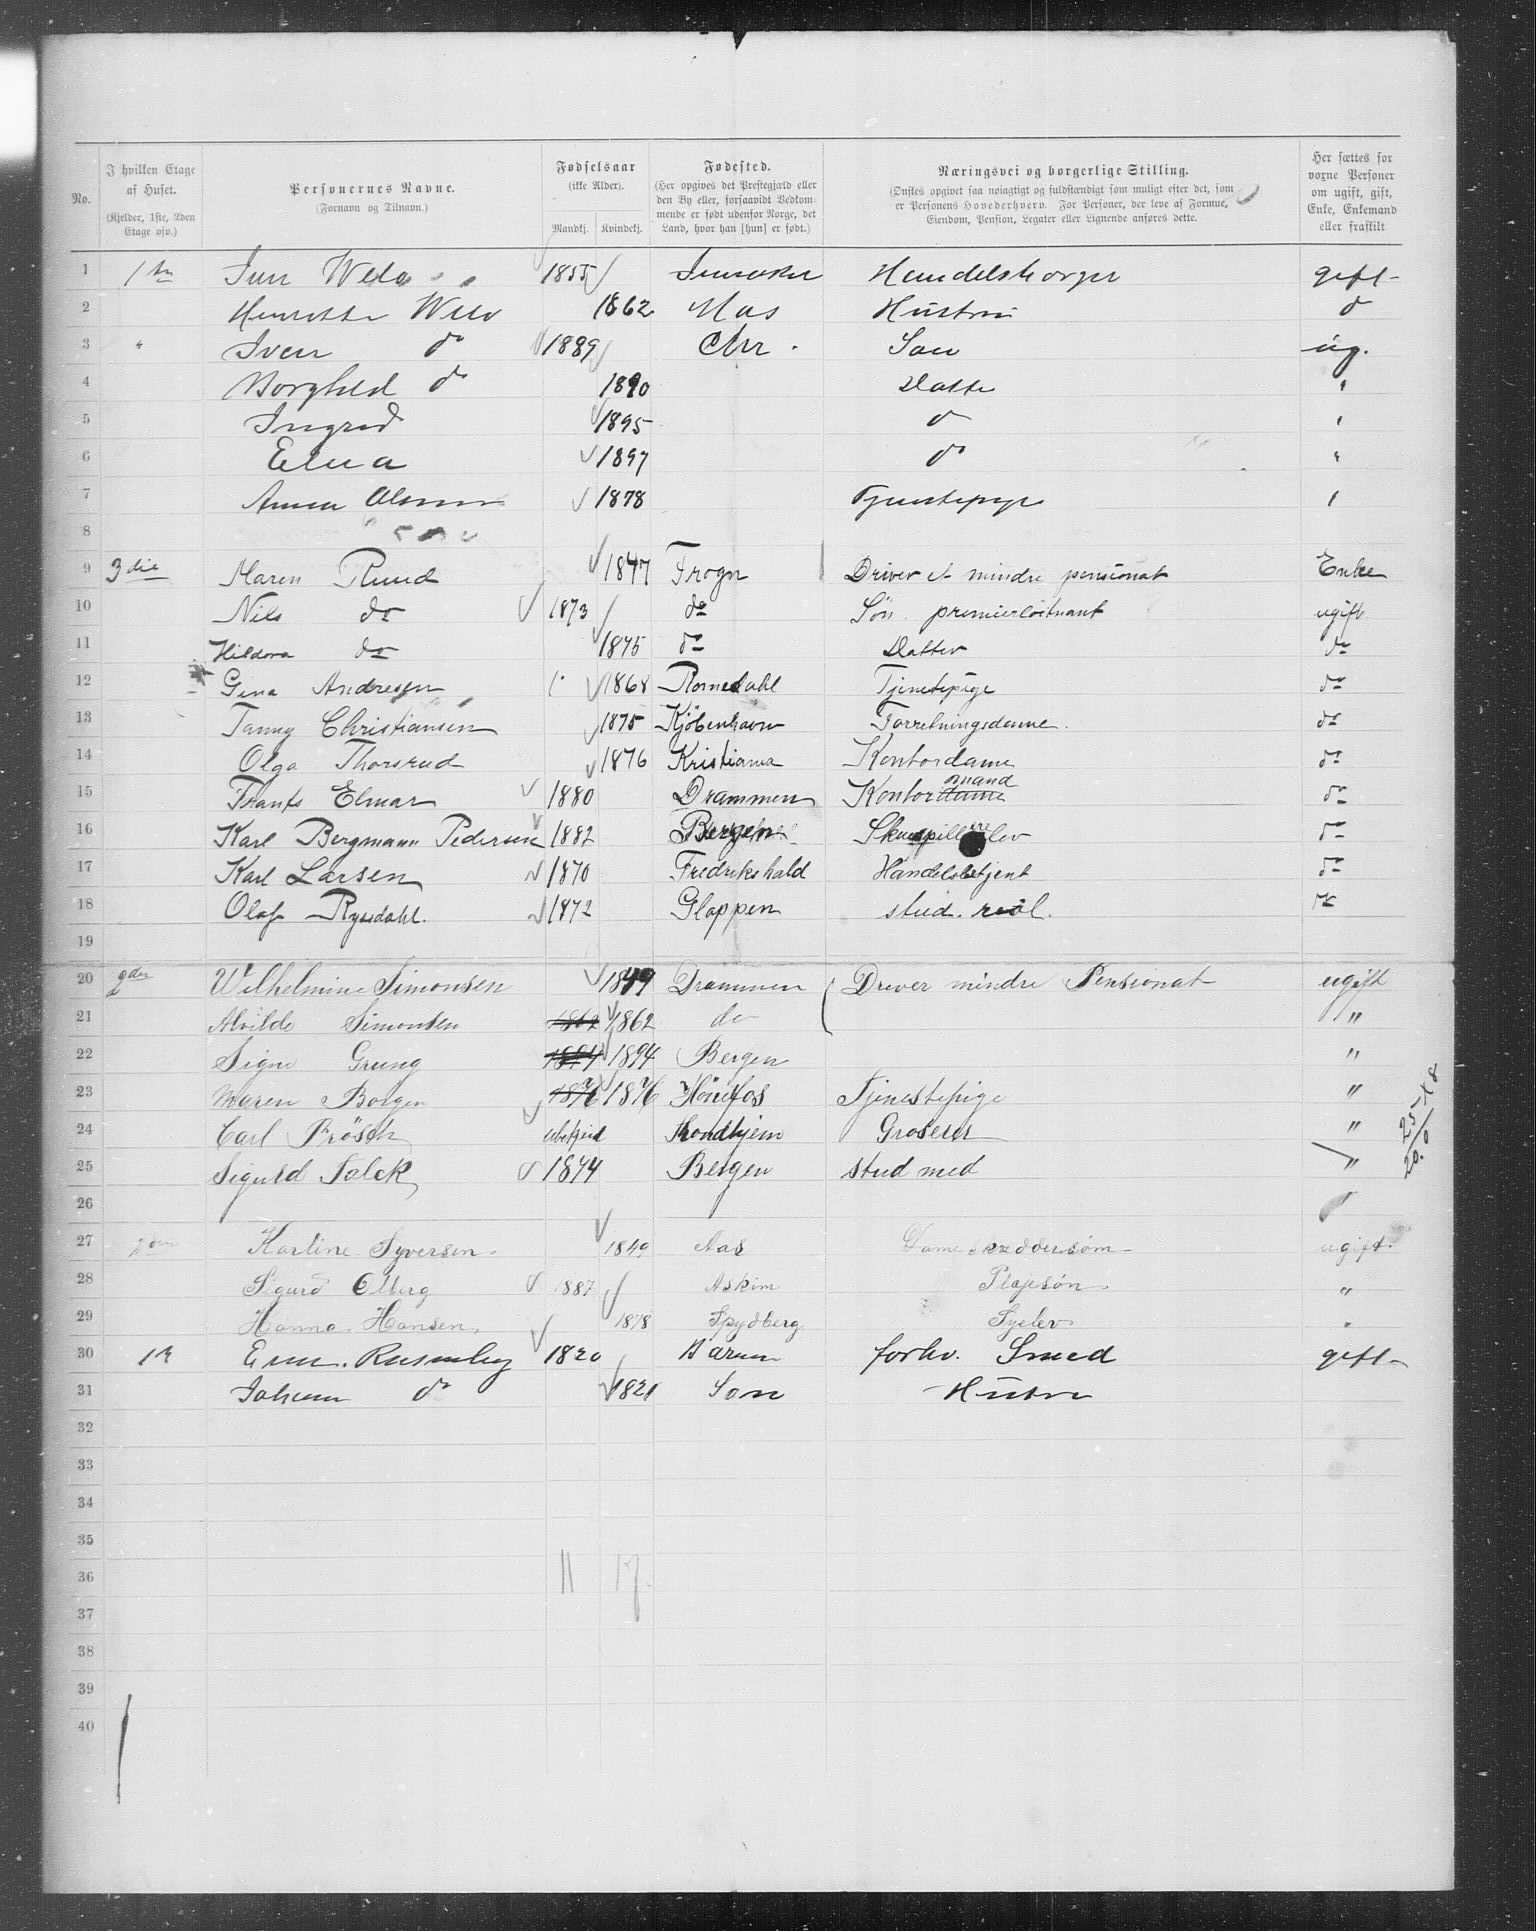 No.
I hvilken Etage af Huset.
(Kjelder, 1ste, 2den Etage osv.)
Personernes Navne.
(Fornavn og Tilnavn.)
Fødselsaar
(ikke Alder).
Mandkj. Kvindekj.
Fødested.
(Her opgives det Prestegjæld eller den By eller, forsaavidt Vedkommende er født udenfor Norge, det Land, hvor han [hun] er født.)
Næringsvei og borgerlige Stilling.
(Ønskes opgivet saa nøiagtigt og fuldstændigt som muligt efter det, som er Personens Hovederhverv. For Personer, der leve af Formue, Eiendom, Pension, Legater eller Lignende anføres dette.
Her sættes for voxne Personer om ugift, gift, Enke, Enkemand eller fraskilt
1 1855 gift
2 1862 Aas Hustru d
3 " Iver do 1889 Chr. Søn ug.
4 Borghild do 1890 Datter "
5 Ingrid 1895 do "
6 Elna 1897 do "
7 Anna Olsen 1878 Tjenestepige "
8
9 3die Maren Ruud 1847 Frogn Driver et mindre pensionat Enke
10 Nils do 1873 do Søn. premierløitnant ugift
11 Hildora do 1875 do Datter do
12 Gina Andresen 1868 Romedahl Tjenestepige do
13 Fanny Christiansen 1875 Kjöbenhavn Forretningsdame. do
14 Olga Thorsrud 1876 Kristiania Kontordame do
15 Frants Elmar 1880 Drammen Kontormand do
16 Karl Bergmann Pedersen 1882 Bergen Skuespillerelev do
17 Karl Larsen 1870 Fredrikshald Handelsbetjent do
18 Olaf Rysdahl. 1872 Gloppen stud. real. do
19
20 2den Wilhelmine Simonsen 1849 Drammen Drever mindre Pensionat ugift
21 Alvilde Simonsen 1862 1862 do "
22 Signe Grung 1894 1894 Bergen "
23 Maren Borgen 1876 1876 Hönefos Tjenestepige "
24 Carl Brösch ubekjend Trondhjem Groserer "
25 Sigurd Falck 1874 Bergen stud med "
26
27 2den Karline Syversen 1849 Aas Dameskræddersøm ugift.
28 Sigurd Olberg 1887 Askim Plejesøn "
29 Hanna Hansen 1878 Spydberg Syelev "
30 1ste 1820 Bærum forhv. Smed gift
31 Johanne do 1821 Son Hustru
32
33
34
35
36 11 17.
37
38
39
40